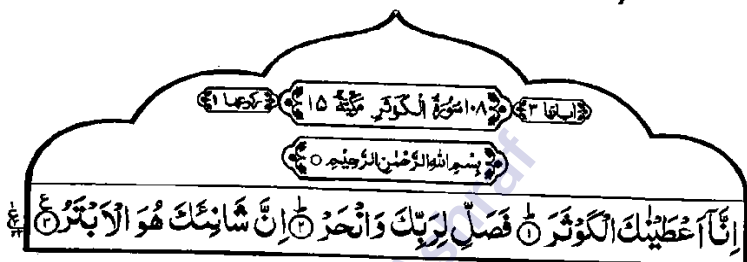 اٰیاتها ٣ ١٠٨ سُوْرَةُ الْكَوْثَرِ مَكِّيَّةٌ ١٥ رکوعها ١
بِسْمِ اللهِ الرَّحْمٰنِ الرَّحِيْمِ ○
اِنَّاۤ اَعْطَيْنٰكَ الْكَوْثَرَ ؕ﴿١﴾ فَصَلِّ لِرَبِّكَ وَانْحَرْ ؕ﴿٢﴾ اِنَّ شَانِئَكَ هُوَ الْاَبْتَرُ ﴿٣﴾ع